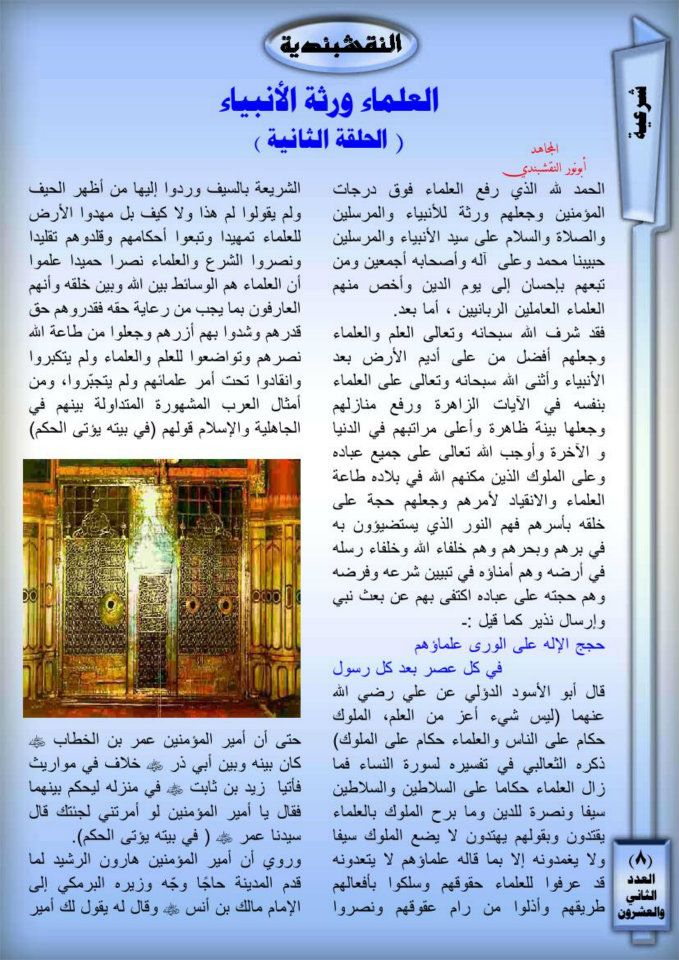 النقشبندية
شرعية
العلماء ورثة الأنبياء
( الحلقة الثانية )
المجاهد
أبونور النقشبندي
الحمد لله الذي رفع العلماء فوق درجات
المؤمنين وجعلهم ورثة للأنبياء والمرسلين
والصلاة والسلام على سيد الأنبياء والمرسلين
حبيبنا محمد وعلى آله وأصحابه أجمعين ومن
تبعهم بإحسان إلى يوم الدين وأخص منهم
العلماء العاملين الربانيين ، أما بعد.
فقد شرف الله سبحانه وتعالى العلم والعلماء
وجعلهم أفضل من على أديم الأرض بعد
الأنبياء وأثنى الله سبحانه وتعالى على العلماء
بنفسه في الآيات الزاهرة ورفع منازلهم
وجعلها بينة ظاهرة وأعلى مراتبهم في الدنيا
و الآخرة وأوجب الله تعالى على جميع عباده
وعلى الملوك الذين مكنهم الله في بلاده طاعة
العلماء والانقياد لأمرهم وجعلهم حجة على
خلقه بأسرهم فهم النور الذي يستضيؤون به
في برهم وبحرهم وهم خلفاء الله وخلفاء رسله
في أرضه وهم أمناؤه في تبيين شرعه وفرضه
وهم حجته على عباده اكتفى بهم عن بعث نبي
وإرسال نذير كما قيل :-
حجج الإله على الورى علماؤهم
في كل عصر بعد كل رسول
قال أبو الأسود الدؤلي عن علي رضي الله
عنهما (ليس شيء أعز من العلم، الملوك
حكام على الناس والعلماء حكام على الملوك)
ذكره الثعالبي في تفسيره لسورة النساء فما
زال العلماء حكاما على السلاطين والسلاطين
سيفا ونصرة للدين وما برح الملوك بالعلماء
يقتدون وبقولهم يهتدون لا يضع الملوك سيفا
ولا يغمدونه إلا بما قاله علماؤهم لا يتعدونه
قد عرفوا للعلماء حقوقهم وسلكوا بأفعالهم
طريقهم وأذلوا من رام عقوقهم ونصروا
الشريعة بالسيف وردوا إليها من أظهر الحيف
ولم يقولوا لم هذا ولا كيف بل مهدوا الأرض
للعلماء تمهيدا وتبعوا أحكامهم وقلدوهم تقليدا
ونصروا الشرع والعلماء نصرا حميدا علموا
أن العلماء هم الوسائط بين الله وبين خلقه وأنهم
العارفون بما يجب من رعاية حقه فقدروهم حق
قدرهم وشدوا بهم أزرهم وجعلوا من طاعة الله
نصرهم وتواضعوا للعلم والعلماء ولم يتكبروا
وانقادوا تحت أمر علمائهم ولم يتجبّروا، ومن
أمثال العرب المشهورة المتداولة بينهم في
الجاهلية والإسلام قولهم (في بيته يؤتى الحكم)
حتى أن أمير المؤمنين عمر بن الخطاب ﷺ
كان بينه وبين أبي ذر ﷺ خلاف في مواريث
فأتيا زيد بن ثابت ﷺ في منزله ليحكم بينهما
فقال يا أمير المؤمنين لو أمرتني لجئتك قال
سيدنا عمر ﷺ ( في بيته يؤتى الحكم).
وروي أن أمير المؤمنين هارون الرشيد لما
قدم المدينة حاجًا وجّه وزيره البرمكي إلى
الإمام مالك بن أنس ﷺ وقال له يقول لك أمير
(٨)
العدد
الثاني
والعشرون